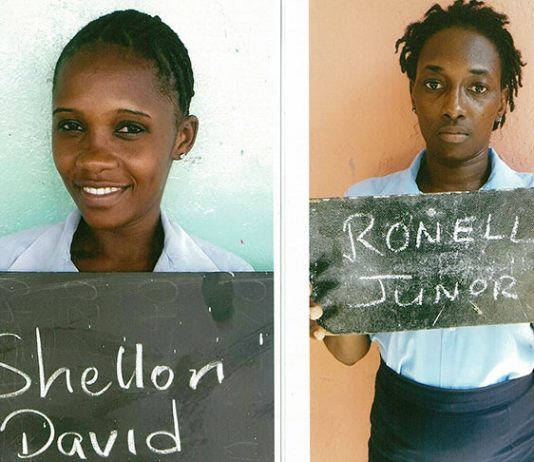 Shellon
David
RONELL
JUNOR